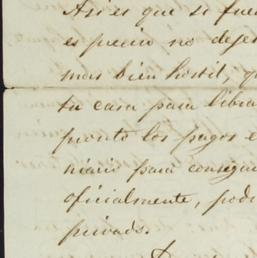 Así es que si fue
es preciso no deje
mas bien hostil, q
tu casa para libra
pronto los pagos e
niario para consegu
oficialmente, pod
privado.